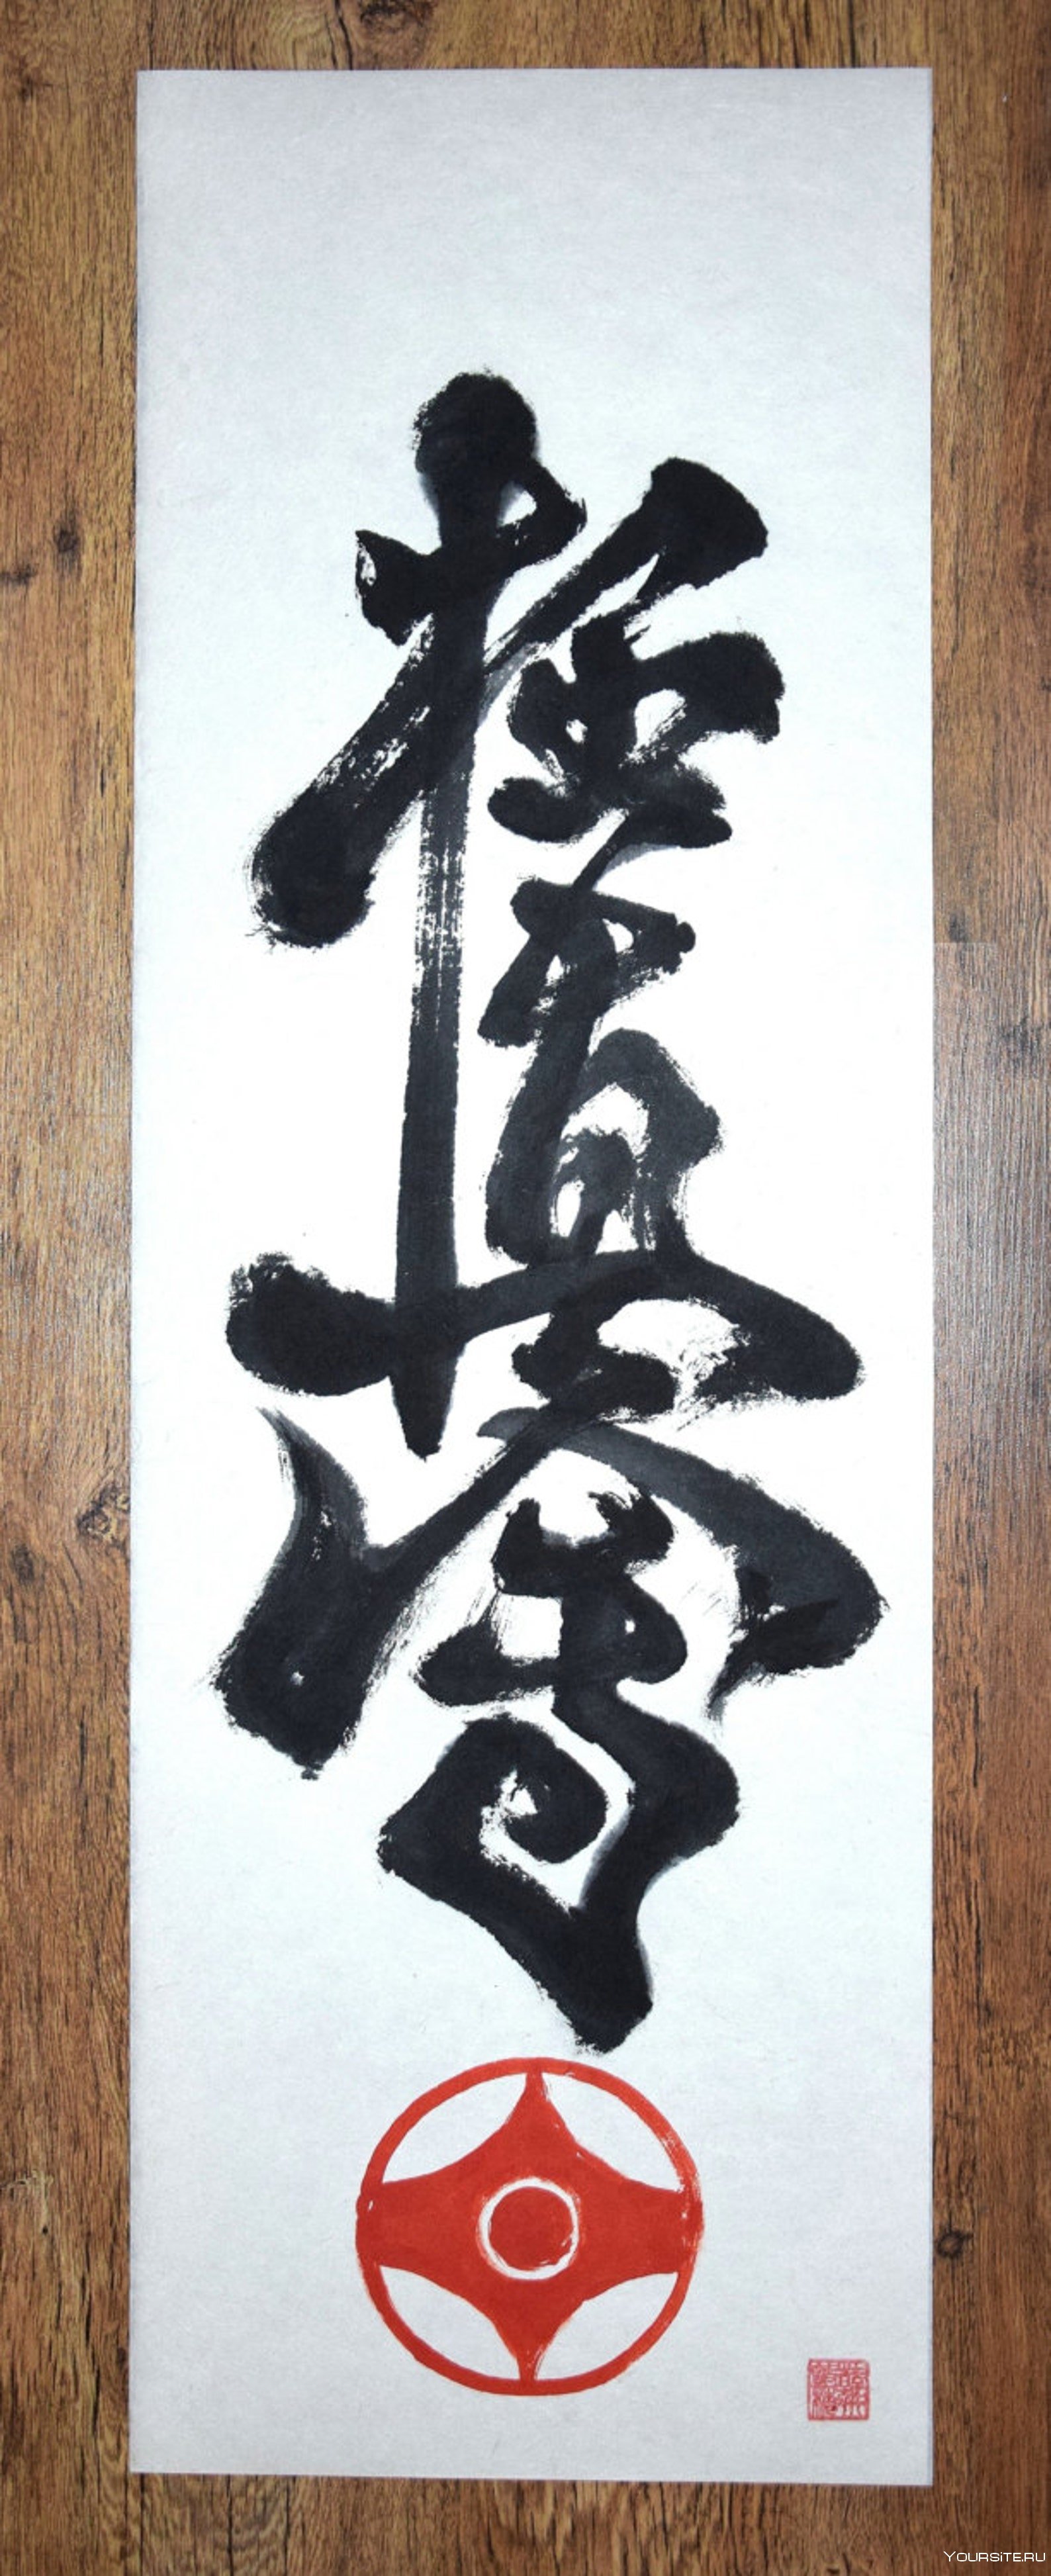 極真會
YOURSITE.RU